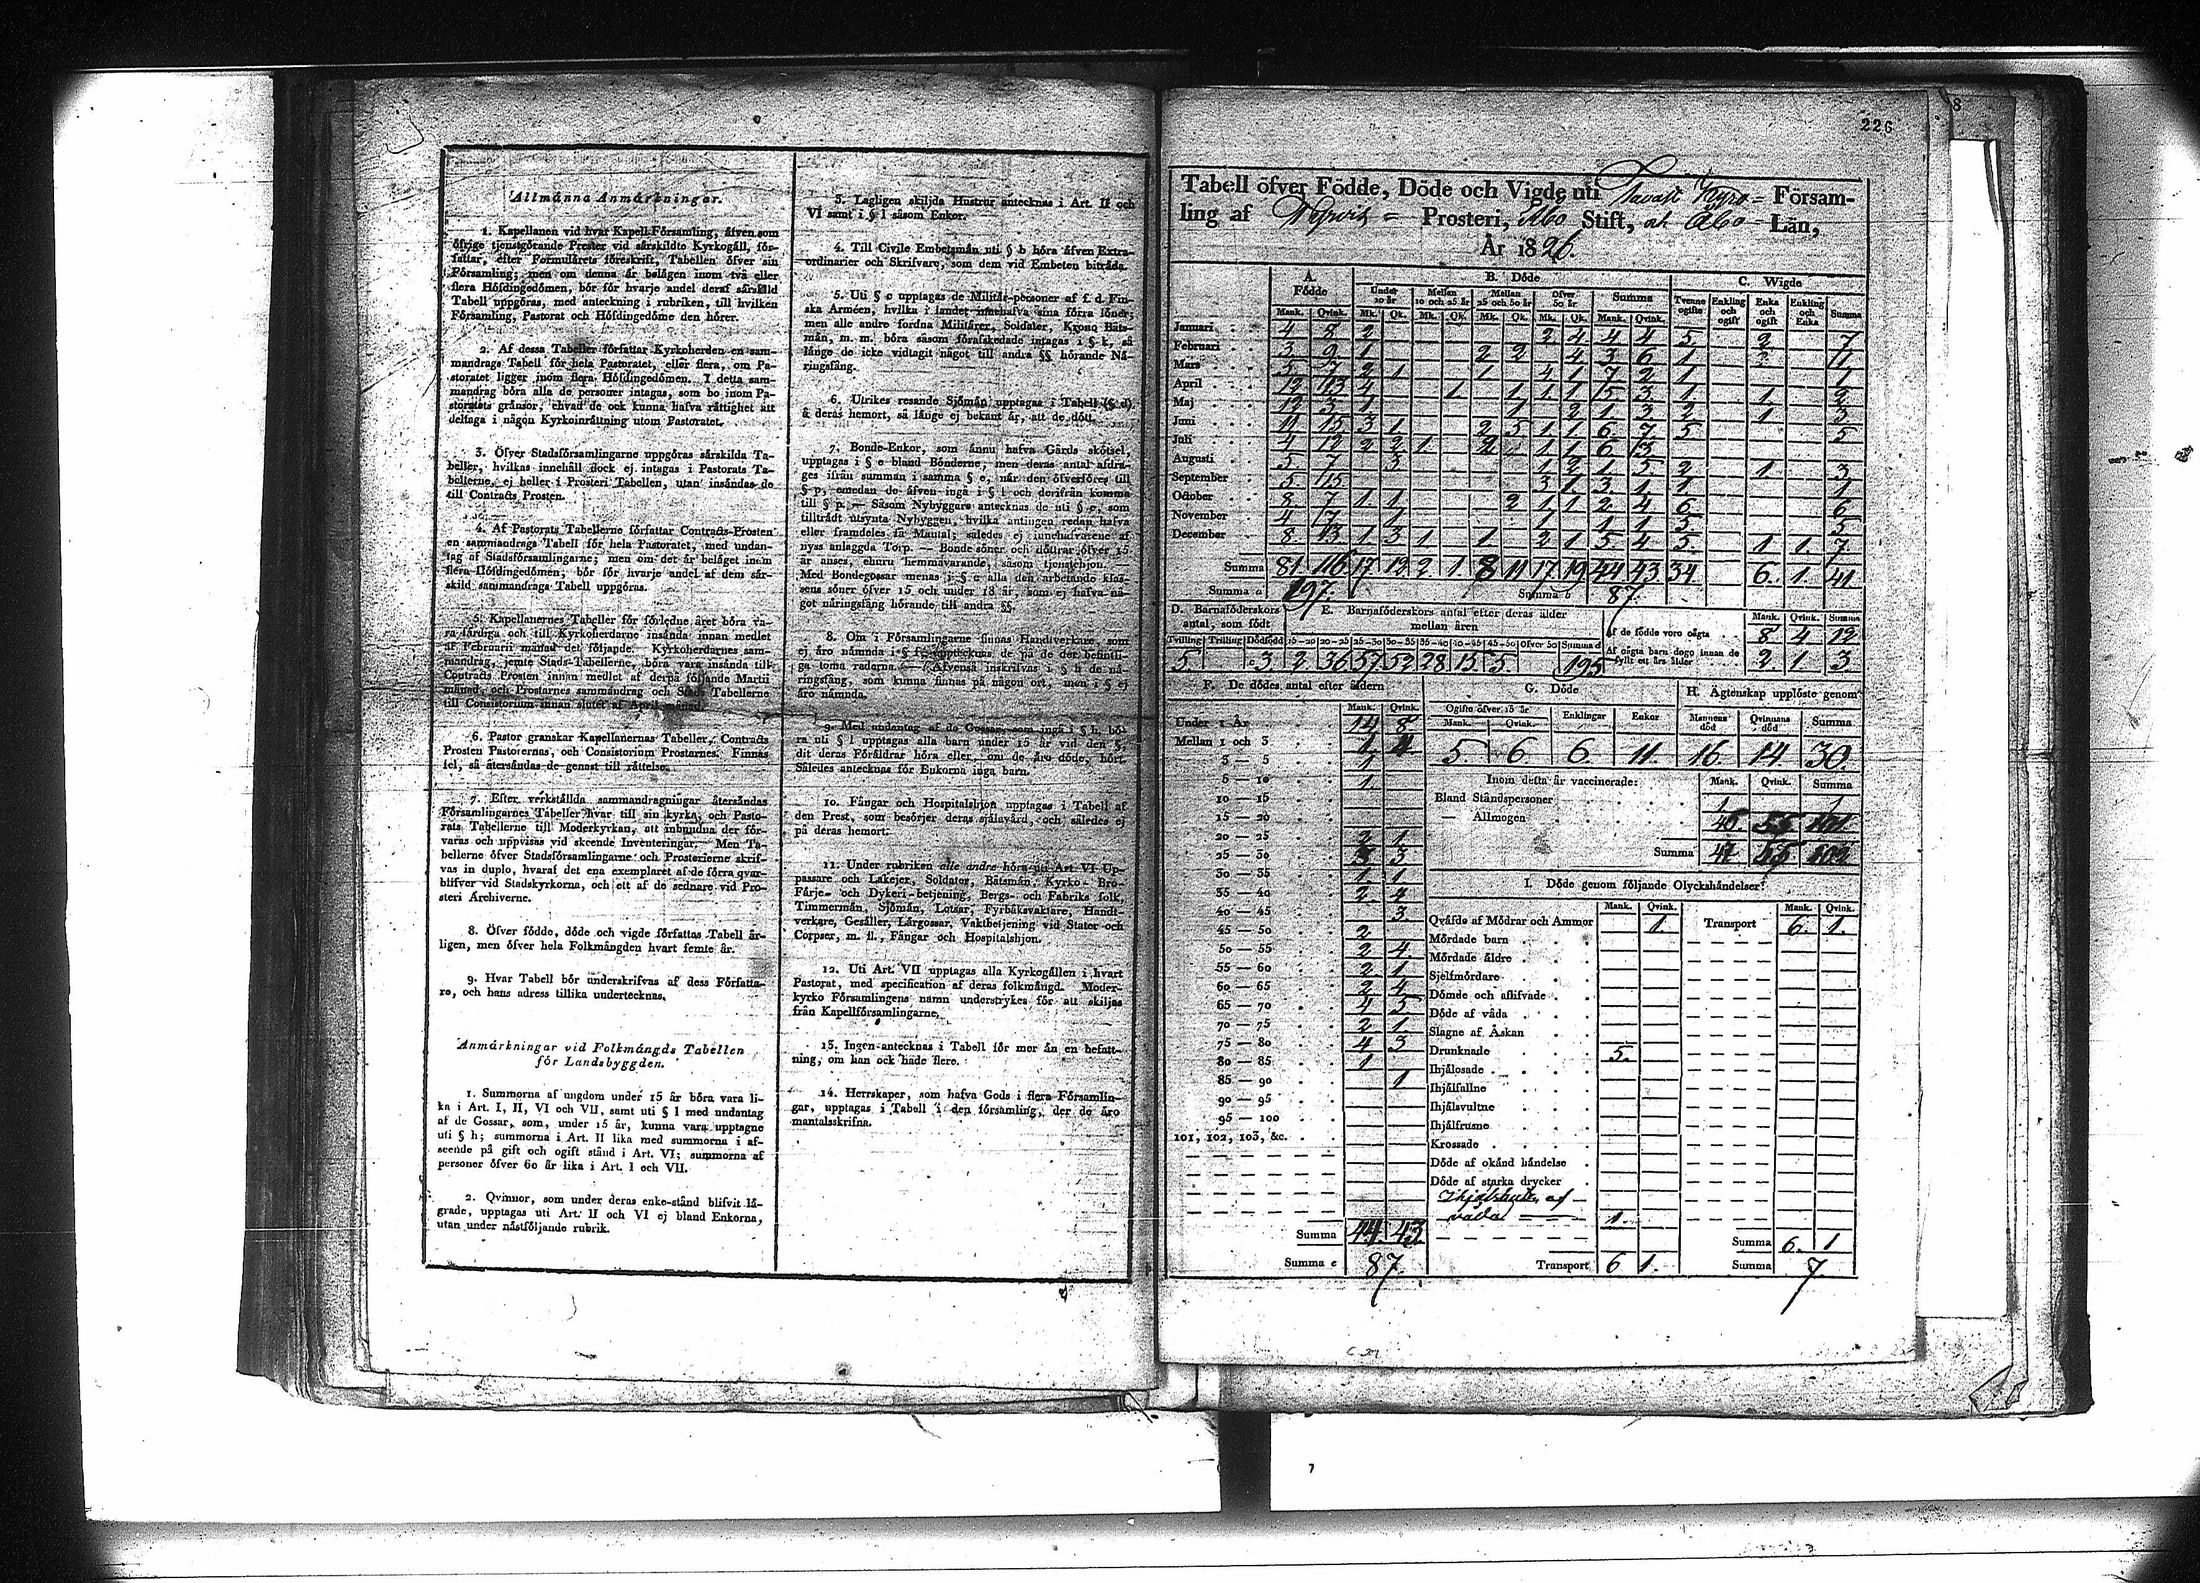 Allmänna Anmärkningar.
1. Kapellanen vid hvar Kapell-Församling, äfven som
öfrige tjenstgörande Prester vid särskildte Kyrkogäll, för-
fattar, efter Formulärets föreskrift, Tabellen öfver sin
Församling; men om denna är belägen inom två eller
flera Höfdingedömen, bör för hvarje andel deraf särskild
Tabell uppgöras, med anteckning i rubriken, till hvilken
Församling, Pastorat och Höfdingedöme den hörer.
2. Af dessa Tabeller författar Kyrkoherden en sam-
mandrags Tabell för hela Pastoratet, eller flera, om Pa-
storatet ligger inom flera Höfdingedömen. I detta sam-
mandrag böra alla de personer intagas, som bo inom Pa-
storatets gränsor, ehvad de ock kunna hafva rättighet att
deltaga i någon Kyrkoinrättning utom Pastoratet.
3. Öfver Stadsförsamlingarne uppgöras särskilda Ta-
beller, hvilkas innehåll dock ej intages i Pastorats Ta-
bellerne, ej heller i Prosteri Tabellen, utan insändas de
till Contracts Prosten.
4. Af Pastorats Tabellerne författar Contracts-Prosten
en sammandrags Tabell för hela Pastoratet, med undan-
tag af Stadsförsamlingarne; men om det är beläget inom
flera Höfdingedömen, bör för hvarje andel af dem sär-
skild sammandrags Tabell uppgöras.
5. Kapellanernes Tabeller för förledne året böra va-
ra färdiga och till Kyrkoherdarne insända innan medlet
af Februarii månad det följande. Kyrkoherdarnes sam-
mandrag, jemte Stads-Tabellerne, böra vara insända till
Contracts Prosten innan medlet af derpå följande Martii
månad, och Prostarnes sammandrag och Stads Tabellerne
till Consistorium innan slutet af April månad.
6. Pastor granskar Kapellanernas Tabeller, Contracts
Prosten Pastorernas, och Consistorium Prostarnes. Finnas
fel, så återsändas de genast till rättelse.
7. Efter verkställda sammandragningar återsändas
Församlingarnes Tabeller hvar till sin kyrka, och Pasto-
rats Tabellerne till Moderkyrkan, att inbundna der för-
varas och uppvisas vid skeende Inventeringar. Men Ta-
bellerne öfver Stadsförsamlingarne och Prosterierne skrif-
vas in duplo, hvaraf det ena exemplaret af de förra qvar-
blifver vid Stadskyrkorna, och ett af de sednare vid Pro-
steri Archiverne.
8. Öfver födde, döde och vigde författas Tabell år-
ligen, men öfver hela Folkmängden hvart femte år.
9. Hvar Tabell bör underskrifvas af dess Författa-
re, och hans adress tillika undertecknas.
Anmärkningar vid Folkmängds Tabellen
för Landsbyggden.
1. Summorna af ungdom under 15 år böra vara li-
ka i Art. I, II, VI och VII, samt uti § l med undantag
af de Gossar, som, under 15 år, kunna vara upptagne
uti § h; summorna i Art. II lika med summorna i af-
seende på gift och ogift stånd i Art. VI; summorna af
personer öfver 60 år lika i Art. I och VII.
2. Qvinnor, som under deras enke-stånd blifvit lä-
grade, upptagas uti Art. II och VI ej bland Enkorna,
utan under nästföljande rubrik.
3. Lagligen skiljda Hustrur antecknas i Art. II och
VI samt i § l såsom Enkor.
4. Till Civile Embetsmän uti § b höra äfven Extra-
ordinarier och Skrifvare, som dem vid Embeten biträda.
5. Uti § c upptagas de Militär-personer af f. d. Fin-
ska Arméen, hvilka i landet innehafva sina förra löner;
men alle andre fordna Militärer, Soldater, Krono Båts-
män, m. m. böra såsom förafskedade intagas i § k, så
länge de icke vidtagit något till andra §§ hörande Nä-
ringsfång.
6. Utrikes resande Sjömän upptagas i Tabell (§ d)
å deras hemort, så länge ej bekant är, att de dött.
7. Bonde-Enkor, som ännu hafva Gårds skötsel,
upptagas i § e bland Bönderne, men deras antal afdra-
ges ifrån summan i samma § e, när den öfverföres till
§ p, emedan de äfven ingå i § l och derifrån komma
till § p. — Såsom Nybyggare antecknas de uti § e, som
tillträdt utsynta Nybyggen, hvilka antingen redan hafva
eller framdeles få Mantal; således ej innehafvarene af
nyss anlaggda Torp. — Bonde söner och döttrar öfver 15
år anses, ehuru hemmavarande, såsom tjenstehjon.
Med Bondegossar menas i § e alla den arbetande klas-
sens söner öfver 15 och under 18 år, som ej hafva nå-
got näringsfång hörande till andra §§.
8. Om i Församlingarne finnas Handtverkare, som
ej äro nämnda i § f, upptecknas de på de der befintli-
ga toma raderna. — Äfvenså inskrifvas i § h de nä-
ringsfång, som kunna finnas på någon ort, men i § ej
äro nämnda.
9. Med undantag af de Gossar, som ingå i § h, bö-
ra uti § l upptagas alla barn under 15 år vid den §,
dit deras Föräldrar höra eller, om de äro döde, hört.
Således antecknas för Enkorna inga barn.
10. Fångar och Hospitalshjon upptagas i Tabell af
den Prest, som besörjer deras själavård, och således ej
på deras hemort.
11. Under rubriken alle andre höra uti Art VI Up-
passare och Lakejer, Soldater, Båtsmän, Kyrko- Bro-
Färje- och Dykeri-betjening, Bergs- och Fabriks folk,
Timmermän, Sjömän, Lotsar, Fyrbåksväktare, Handt-
verkare, Gesäller, Lärgossar, Vaktbetjening vid Stater och
Corpser, m. fl., Fångar och Hospitalshjon.
12. Uti Art. VII upptagas alla Kyrkogällen i hvart
Pastorat, med specification af deras folkmängd. Moder-
kyrko Församlingens namn understrykes för att skiljas
från Kapellförsamlingarne.
13. Ingen antecknas i Tabell för mer än en befatt-
ning, om han ock hade flere.
14. Herrskaper, som hafva Gods i flera Församlin-
gar, upptagas i Tabell i den församling, der de äro
mantalsskrifna.
8
226
Tabell öfver Födde, Döde och Vigde uti Tavast Kyro = Försam-
ling af Prosteri, Åbo Stift, Åbo Län,
År 1826.
A. Födde B. Döde C. Wigde
Under 10 år Mellan 10 och 25 år Mellan 25 och 50 år Öfver 50 år Summa Tvenne ogifte Enkling och ogift Enka och ogift Enkling och Enka Summa
Mank. Qvink. Mk. Qk. Mk. Qk. Mk. Qk. Mk. Qk. Mank. Qvink.
Januari 4 8 2 2 4 4 4 5 2 7
Februari 3 9 1 2 2 4 3 6 1
Mars 5 7 2 1 1 4 1 7 2 1 1
April 12 13 4 1 1 1 1 5 3 1 1 2
Maj 12 3 1 1 2 1 3 2 1 3
Juni 11 15 3 1 2 5 1 1 6 7 5 5
Juli 4 12 2 2 1 2 1 1 6
Augusti 5 7 3 1 2 1 5 2 1 3
September 5 15 3 1 3 1 1 1
October 8 7 1 1 2 1 1 2 4 6 6
November 4 7 1 1 1 1 5 5
December 8 13 1 3 1 1 2 1 5 4 5 1 1 7
Summa 81 116 17 12 2 1 8 11 17 19 44 43 34 6 1 41
Summa a 197. Summa b 87.
D. Barnaföderskors antal, som födt
E. Barnaföderskors antal efter deras ålder mellan åren
Mank. Qvink. Summa
Tvilling Trilling Dödfödd 15—20 20—25 25—30 30—35 35—40 40—45 45—50 öfver 50 Summa d
5 3 2 36 57 52 28 15 5 195
Af de födde voro oägta 8 4 12
Af oägta barn dogo innan de fyllt ett års ålder 2 1 3
F. De dödes antal efter åldern
Mank. Qvink.
Under 1 År 14 8
Mellan 1 och 3 1 4
3 — 5 1
5 — 10 1
10 — 15
15 — 20
20 — 25 2 1
25 — 30 3 3
30 — 35 1 1
35 — 40 2 4
40 — 45 3
45 — 50 2
50 — 55 2 4
55 — 60 2 1
60 — 65 2 4
65 — 70 4 5
70 — 75 2 1
75 — 80 4 3
80 — 85 1
85 — 90 1
90 — 95
95 — 100
101, 102, 103, &c.
Summa 44 43
Summa e 87.
G. Döde
Ogifte öfver 15 år Enklingar Enkor
Mank. Qvink.
5 6 6 11
H. Ägtenskap upplöste genom
Mannens död Qvinnans död Summa
16 14 30
Inom detta år vaccinerade: Mank. Qvink. Summa
Bland Ståndspersoner 1 1
— Allmogen 46 55 101
Summa 47 55 102
I. Döde genom följande Olyckshändelser:
Mank. Qvink. Mank. Qvink.
Qväfde af Mödrar och Ammor 1. Transport 6. 1.
Mördade barn
Mördade äldre
Sjelfmördare
Dömde och aflifvade
Döde af våda
Slagne af Åskan
Drunknade 5.
Ihjälosade
Ihjälfallne
Ihjälsvultne
Ihjälfrusne
Krossade
Döde af okänd händelse
Döde af starka drycker
af
våda 1.
Summa 6. 1
Transport 6 1. Summa 7.